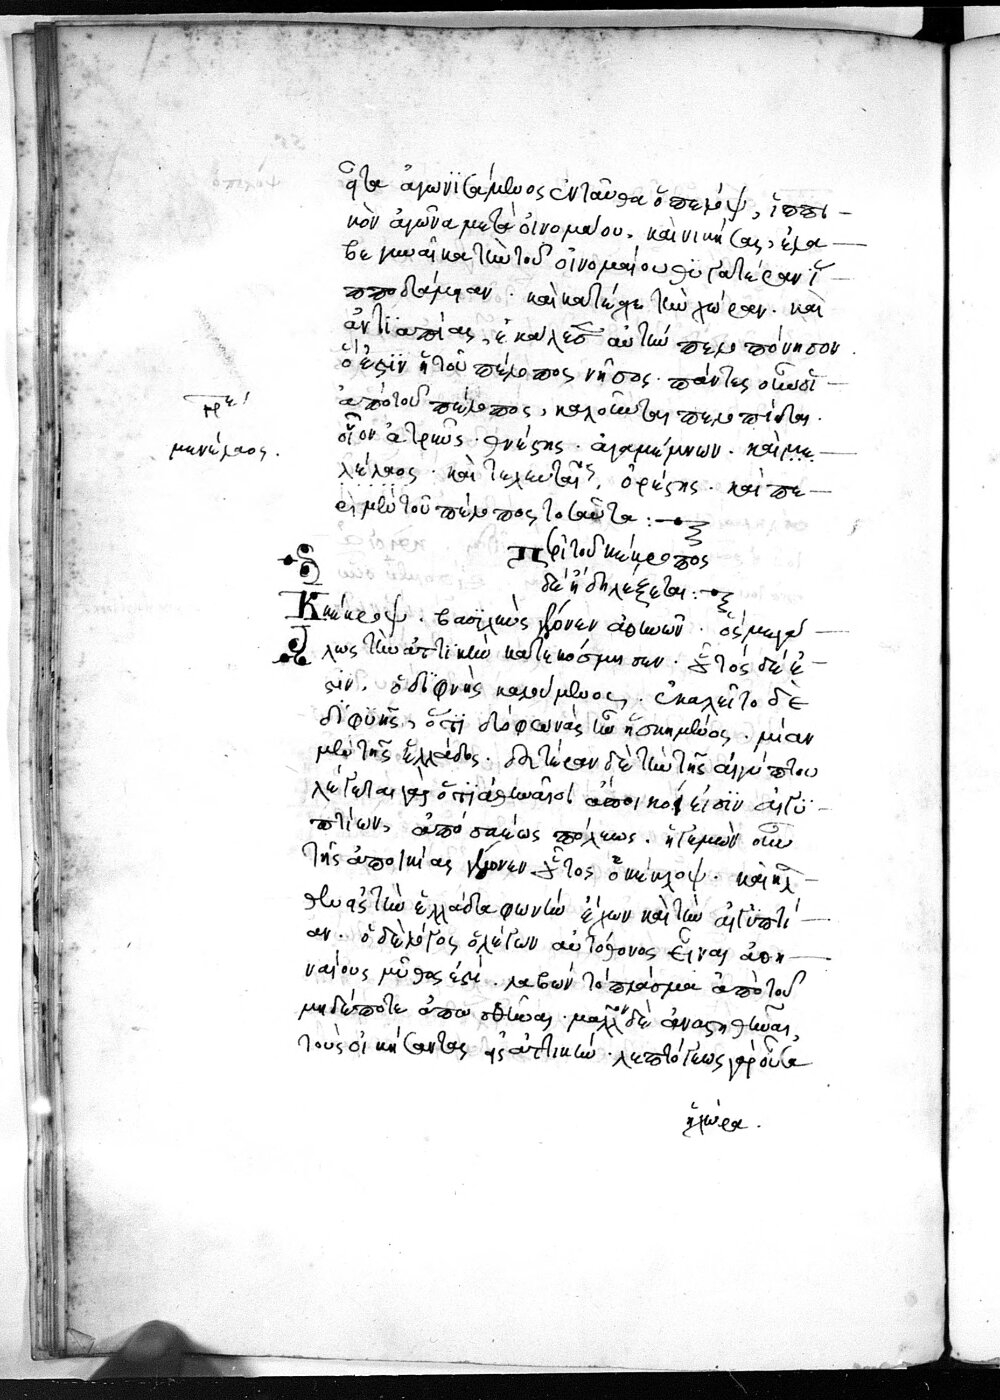 εἶτα ἀγωνισάμενος ἐνταῦθα ὁ πέλοψ, ἱππι
κὸν ἀγῶνα μετὰ οἰνομάου. καὶ νικήσας, ἔλα
βε γυναῖκα τὴν τοῦ οἰνομάου θυγατέραν ἱ
πποδάμειαν. καὶ κατέσχε τὴν χώραν. καὶ
ἀντὶ ἀπίας, ἐκάλεσεν αὐτὴν πελοπόνησον.
ὅ ἐστὶν ἡ τοῦ πέλοπος νῆσος. πάντες οὖν οἱ
ἀπὸ τοῦ πέλοπος, καλοῦνται πελοπίδαι.
οἷον ἀτρεὺς. θυέστης. ἀγαμέμνων. καὶ με
λέλαος. καὶ τελευταῖος, ὀρέστης. καὶ πε
ρὶ μὲν τοῦ πέλοπος τοσαῦτα:
μενέλαος.
περὶ τοῦ κέκροπος
δὲ ἤδη λέξεται:
Κέκροψ. βασιλεὺς γέγονεν ἀθηνῶν. ὃς μεγά
λως τὴν ἀττικὴν κατεκόσμησεν. οὗτός δέ ἐ
στὶν, ὁ διφυὴς καλούμενος. ἐκαλεῖτο δὲ
διφυὴς, ὅτι δύο φωνὰς ἦν ἠσκημένος. μίαν
μὲν τῆς ἑλλάδος. δευτέραν δὲ τὴν τῆς αἰγύπτου
λέγεται γὰρ ὅτι ἀθηναῖοι ἄποικοί εἰσὶν αἰγυ
πτίων, ἀπὸ σαέως πόλεως. ἡγεμὼν οὖν
τῆς ἀποικίας γέγονεν οὗτος ὁ κέκροψ. καὶ ἦλ
θεν εἰς τὴν ἑλλάδα φωνὴν ἔχων καὶ τὴν αἰγυπτί
αν. ὁ δὲ λόγος ὁ λέγων αὐτόχθονας εἶναι ἀθη
ναίους μῦθος ἐστί. λαβὼν τὸ πλάσμα ἀπὸ τοῦ
μηδέποτε μᾶλλον δὲ
τοὺς οἰκήσαντας εἰς ἀττικὴν. λεπτόγεως γὰρ οὖσα
ἡ χώρα.